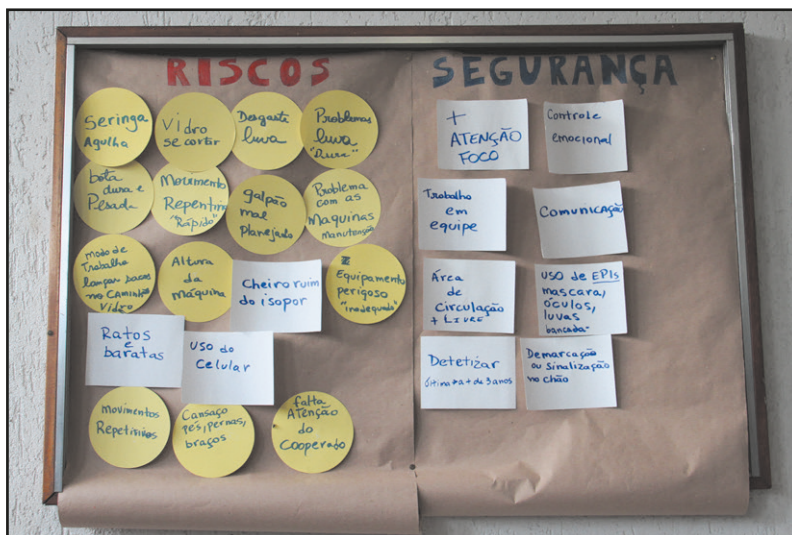 RISCOS
Seringa
Agulha
Vidro
se cortir
Desgaste
luva
Problemas
luva
"Dura"
bota
dura e
Pesada
Movimento
Repentino
"Rápido"
galpão
mal
Planejado
Problema
com as
Maquinas
manutenção
modo de
Trabalho
no Caminhão
Vidro
Altura
da
Máquina
Cheiro ruim
do isopor
Equipamento
perigoso
"inadequado"
Ratos
e
baratas
uso do
Celular
movimentos
Repetitivos
Cansaço
pés, pernas,
braços
falta
Atenção
do
Cooperado
SEGURANÇA
+
ATENÇÃO
FOCO
Controle
emocional
Trabalho
em
equipe
Comunicação
Área
de
Circulação
+ LIVRE
USO de EPIs
mascara,
óculos,
luvas
bancada
Detetizar
última + de 3 anos
Demarcação
ou Sinalização
no chão